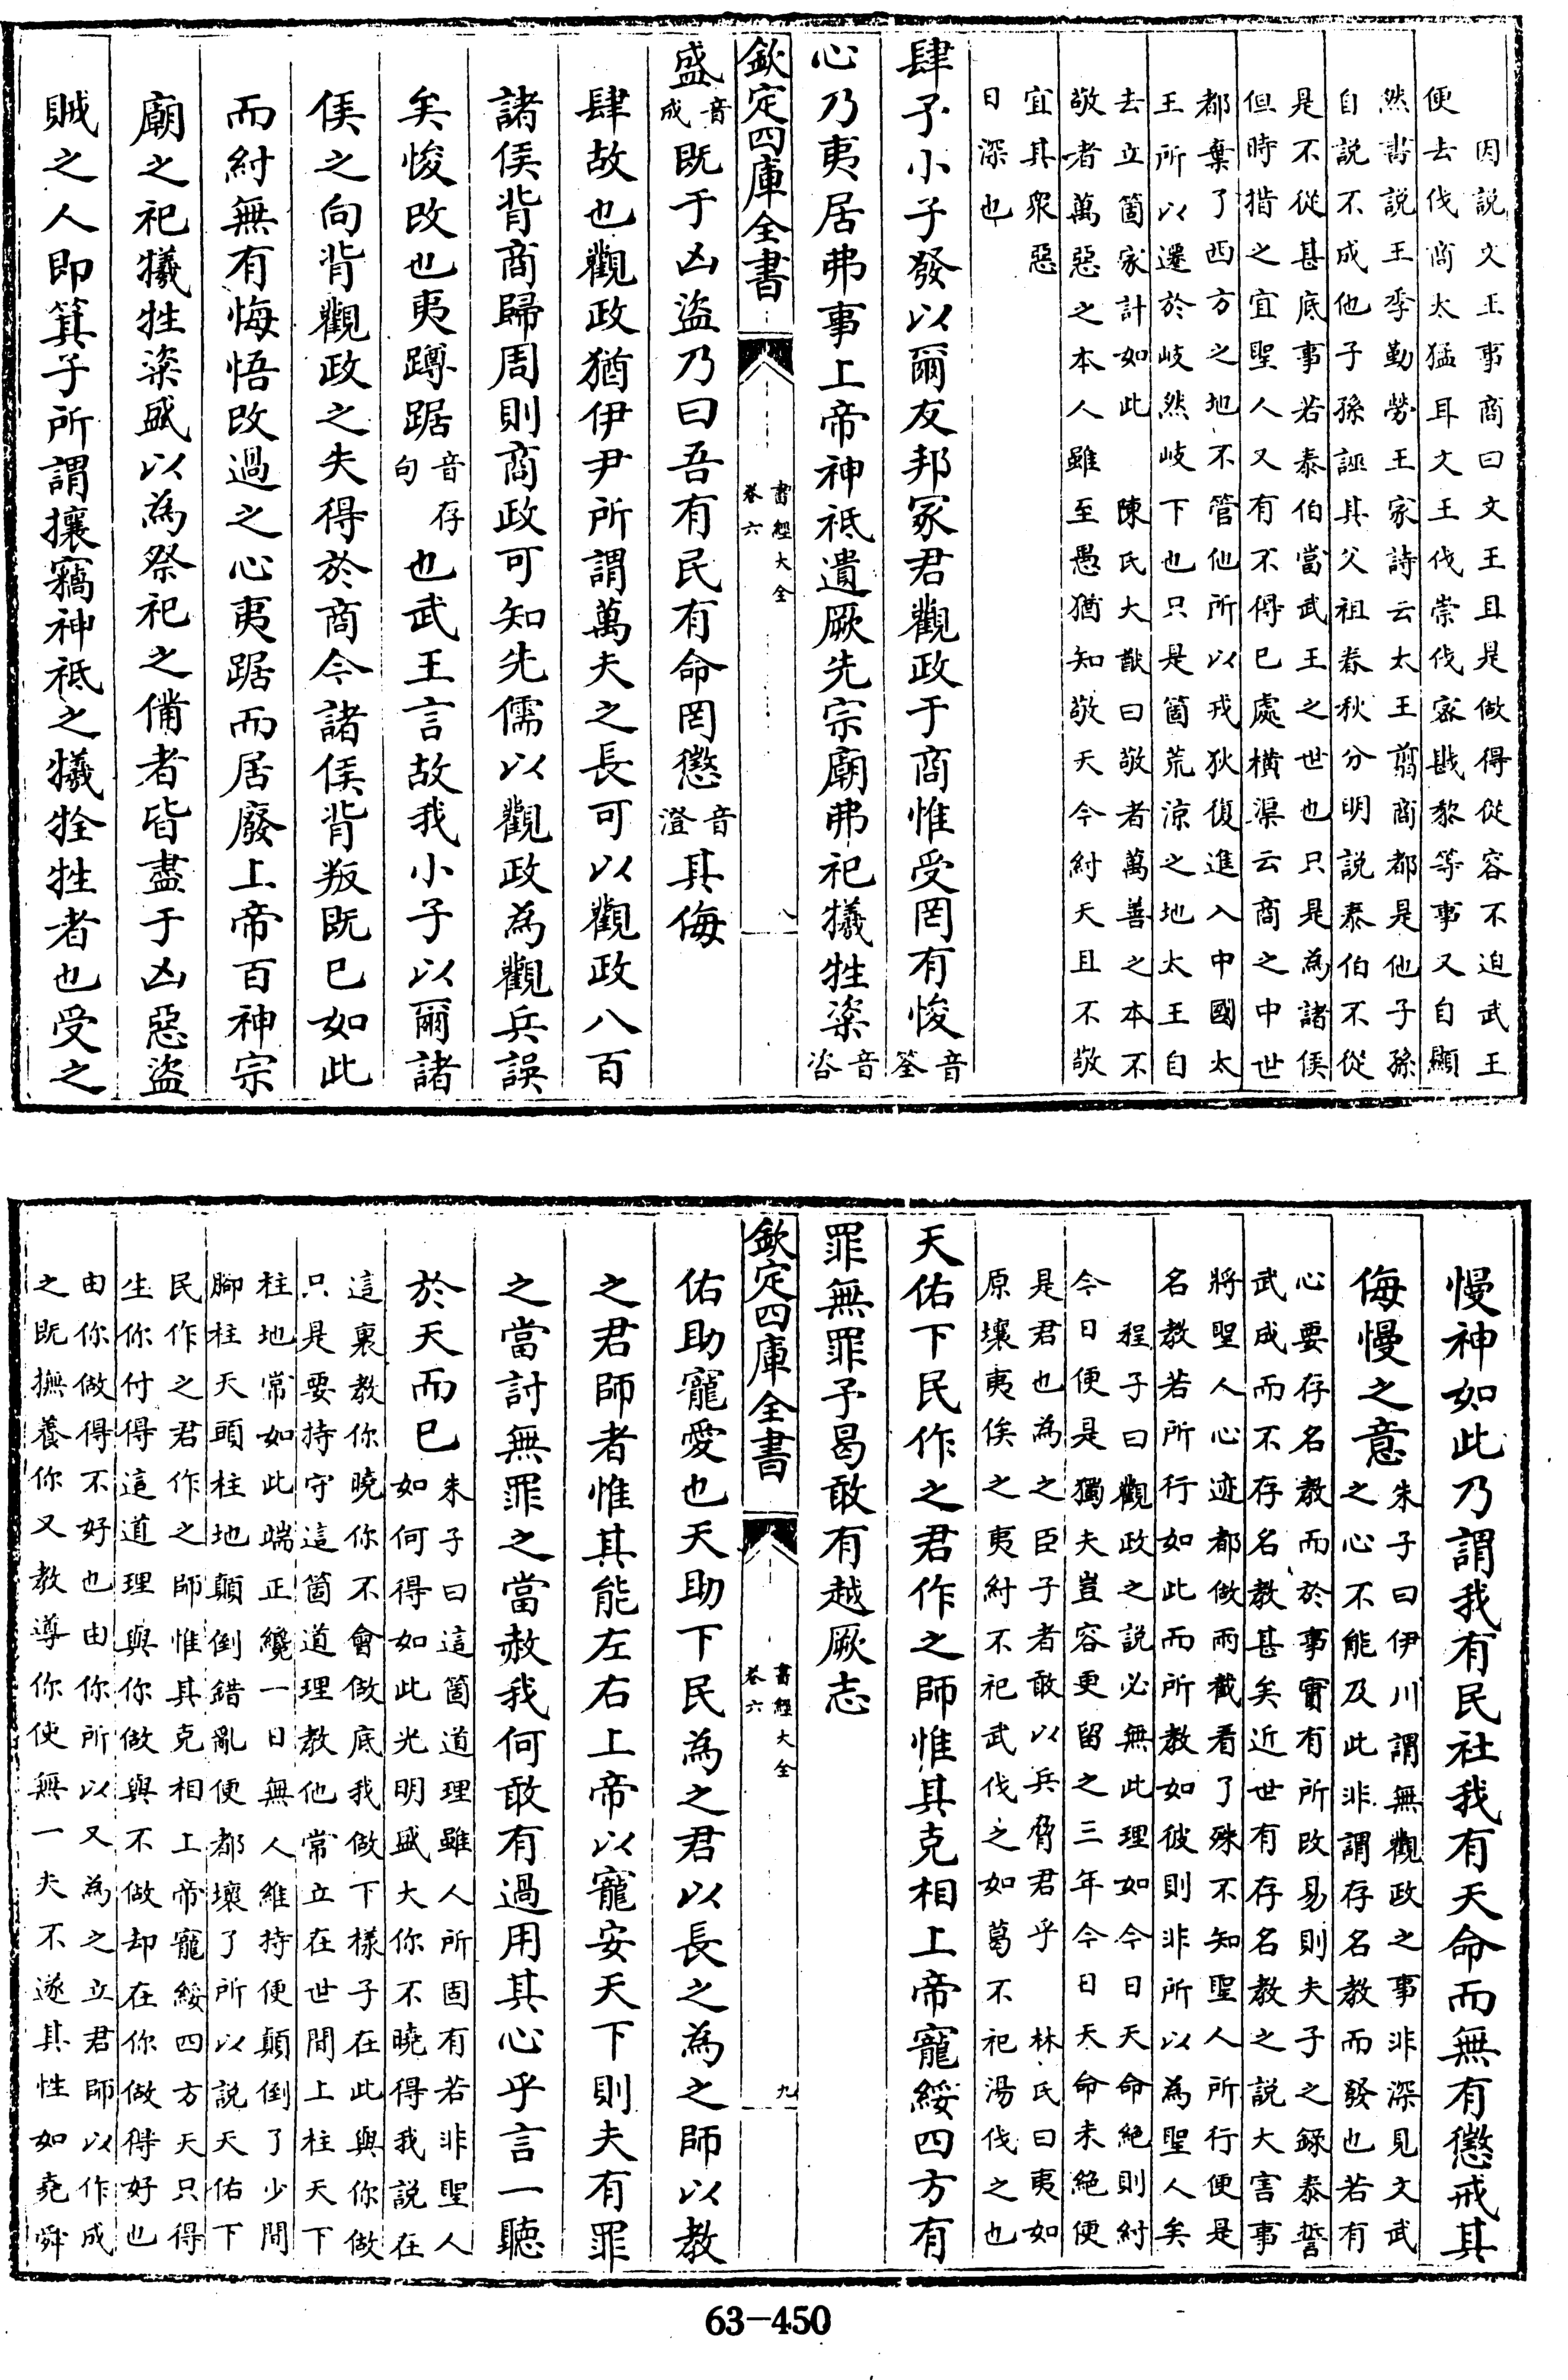 因説文王事商曰文王且是做得從容不迫武王
便去伐商太猛耳文王伐崇伐宻戡黎等事又自顯
然書説王季勤勞王家詩云太王翦商都是他子孫
自説不成他子孫誣其父祖春秋分明説泰伯不從
是不從甚底事若泰伯當武王之世也只是為諸侯
但時措之宜聖人又有不得已處橫渠云商之中世
都棄了西方之地不管他所以戎狄復進入中國太
王所以遷於岐然岐下也只是箇荒涼之地太王自
去立箇家計如此　陳氏大猷曰敬者萬善之本不
敬者萬惡之本人雖至愚猶知敬天今紂天且不敬
宜其衆惡
日深也
肆予小子發以爾友邦冢君觀政于商惟受罔有悛音筌
心乃夷居弗事上帝神祗遺厥先宗廟弗祀犧牲粢音咨
欽定四庫全書　書經大全　卷六　八
盛音成既于凶盜乃曰吾有民有命罔懲音澄其侮
肆故也觀政猶伊尹所謂萬夫之長可以觀政八百
諸侯背商歸周則商政可知先儒以觀政為觀兵誤
矣悛改也夷蹲踞音存句也武王言故我小子以爾諸
侯之向背觀政之失得於商今諸侯背叛既已如此
而紂無有悔悟改過之心夷踞而居廢上帝百神宗
廟之祀犧牲粢盛以為祭祀之備者皆盡于凶惡盜
賊之人即箕子所謂攘竊神祗之犧牷牲者也受之
慢神如此乃謂我有民社我有天命而無有懲戒其
侮慢之意
朱子曰伊川謂無觀政之事非深見文武
之心不能及此非謂存名教而發也若有
心要存名教而於事實有所改易則夫子之録泰誓
武成而不存名教甚矣近世有存名教之説大害事
將聖人心迹都做兩截看了殊不知聖人所行便是
名教若所行如此而所教如彼則非所以為聖人矣
程子曰觀政之説必無此理如今日天命絶則紂
今日便是獨夫豈容更留之三年今日天命未絶便
是君也為之臣子者敢以兵脅君乎　林氏曰夷如
原壤夷俟之夷紂不祀武伐之如葛不祀湯伐之也
天佑下民作之君作之師惟其克相上帝寵綏四方有
罪無罪予曷敢有越厥志
欽定四庫全書　書經大全　卷六　九
佑助寵愛也天助下民為之君以長之為之師以教
之君師者惟其能左右上帝以寵安天下則夫有罪
之當討無罪之當赦我何敢有過用其心乎言一聽
於天而已
朱子曰這箇道理雖人所固有若非聖人
如何得如此光明盛大你不曉得我説在
這裏教你曉你不會做底我做下樣子在此與你做
只是要持守這箇道理教他常立在世間上柱天下
柱地常如此端正纔一日無人維持便顛倒了少間
腳柱天頭柱地顛倒錯亂便都壞了所以説天佑下
民作之君作之師惟其克相上帝寵綏四方天只得
生你付得這道理與你做與不做却在你做得好也
由你做得不好也由你所以又為之立君師以作成
之既撫養你又教導你使無一夫不遂其性如堯舜
63-450